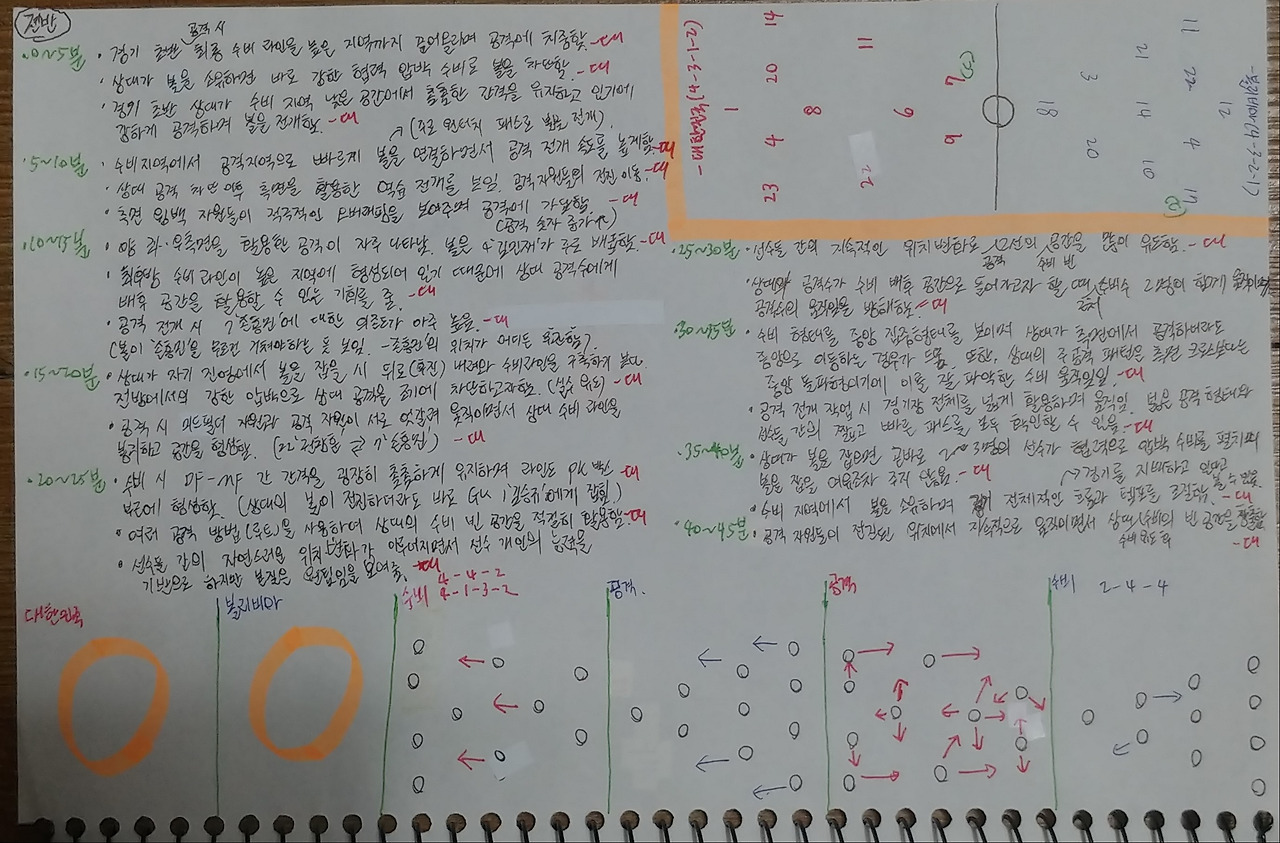 전반
0~5분
· 경기 초반 공격 시 최종 수비 라인을 높은 지역까지 끌어올리며 공격에 치중함. -대
· 상대가 볼을 소유하면 바로 강한 협력 압박 수비로 볼을 차단함. -대
· 경기 초반 상대가 수비 지역 낮은 공간에서 촘촘한 간격을 유지하고 있기에
강하게 공격하며 볼을 전개함. -대
↗(주로 원터치 패스로 볼을 전개)
· 5~10분
· 수비지역에서 공격지역으로 빠르게 볼을 연결하면서 공격 전개 속도를 높게함. -대
· 상대 공격 차단 이후 측면을 활용한 역습 전개를 보임. 공격자원들의 전진 이동. -대
· 측면 윙백 자원들이 적극적인 오버래핑을 보여주며 공격에 가담함. -대
(공격 숫자 증가↑)
· 10~15분
· 양 좌·우측면을 활용한 공격이 자주 나타남. 볼은 4 '김민재'가 주로 배분함. -대
· 최후방 수비 라인이 높은 지역에 형성되어 있기 때문에 상대 공격수에게
배후 공간을 활용할 수 있는 기회를 줌. -대
· 공격 전개 시 7 '손흥민'에 대한 의존도가 아주 높음. -대
(볼이 '손흥민'을 무조건 거쳐야하는 듯 보임. - '손흥민'의 위치가 어디든 무관함.)
· 15~20분
· 상대가 자기 진영에서 볼을 잡을 시 뒤로(후진) 내려와 수비라인을 구축하기 보다
전방에서의 강한 압박으로 상대 공격을 조기에 차단하고자함. (실수 유도) -대
· 공격 시 미드필더 자원과 공격 자원이 서로 엇갈려 움직이면서 상대 수비 라인을
분리하고 공간을 형성함. (22' 권창훈 ⇄ 7' 손흥민) -대
· 20~25분
· 수비 시 DF-MF 간 간격을 굉장히 촘촘하게 유지하며 라인은 PK 박스 -대
부근에 형성함. (상대의 볼이 전진하더라도 바로 GK 1 '김승규'에게 잡힘.)
· 여러 공격 방법(루트)을 사용하며 상대의 수비 빈 공간을 적절히 활용함. -대
· 선수들 간의 자연스러운 위치 변화가 이루어지면서 선수 개인의 능력을
기반으로 하지만 본질은 원팀임을 보여줌. -대
-대한민국(4-3-1-2)
14
20
4
23
1
11
8
22
6
7 (C)
9
-볼리비아(4-3-2-1)
11
21
22
3
12
18
14
4
20
10
17
(C)
· 25~30분
· 선수들 간의 지속적인 위치변화로 2선의 공간을 많이 유도함. -대
공격
수비 빈
· 상대의 공격수가 수비 배후 공간으로 들어가고자 할 때, 수비수 2명이 함께
공격수의 움직임을 방해함. -대
· 30~35분
· 수비 형태를 중앙 집중형태를 보이며 상대가 측면에서 공격하더라도
중앙으로 이동하는 경우가 드뭄. 또한, 상대의 주 공격 패턴은 측면 크로스보다는
중앙 돌파형이기에 이를 잘 파악한 수비 움직임임. -대
· 공격 전개 작업 시 경기장 전체를 넓게 활용하며 움직임. 넓은 공격 형태와
선수들 간의 짧고 빠른 패스를 모두 확인할 수 있음. -대
· 35~40분
· 상대가 볼을 잡으면 곧바로 2~3명의 선수가 협력으로 압박 수비를 펼치며
볼을 잡을 여유조차 주지 않음. -대
↗경기를 지배하고 있다고 볼 수 있음.
· 수비 지역에서 볼을 소유하며 전체적인 흐름과 템포를 조절함. -대
· 40~45분
· 공격 자원들이 전진된 위치에서 지속적으로 움직이면서 상대 수비의 빈 공간을 창출함
수비 유도 후
-대
대한민국
볼리비아
수비
4-4-2
4-1-3-2
공격.
공격
수비 2-4-4